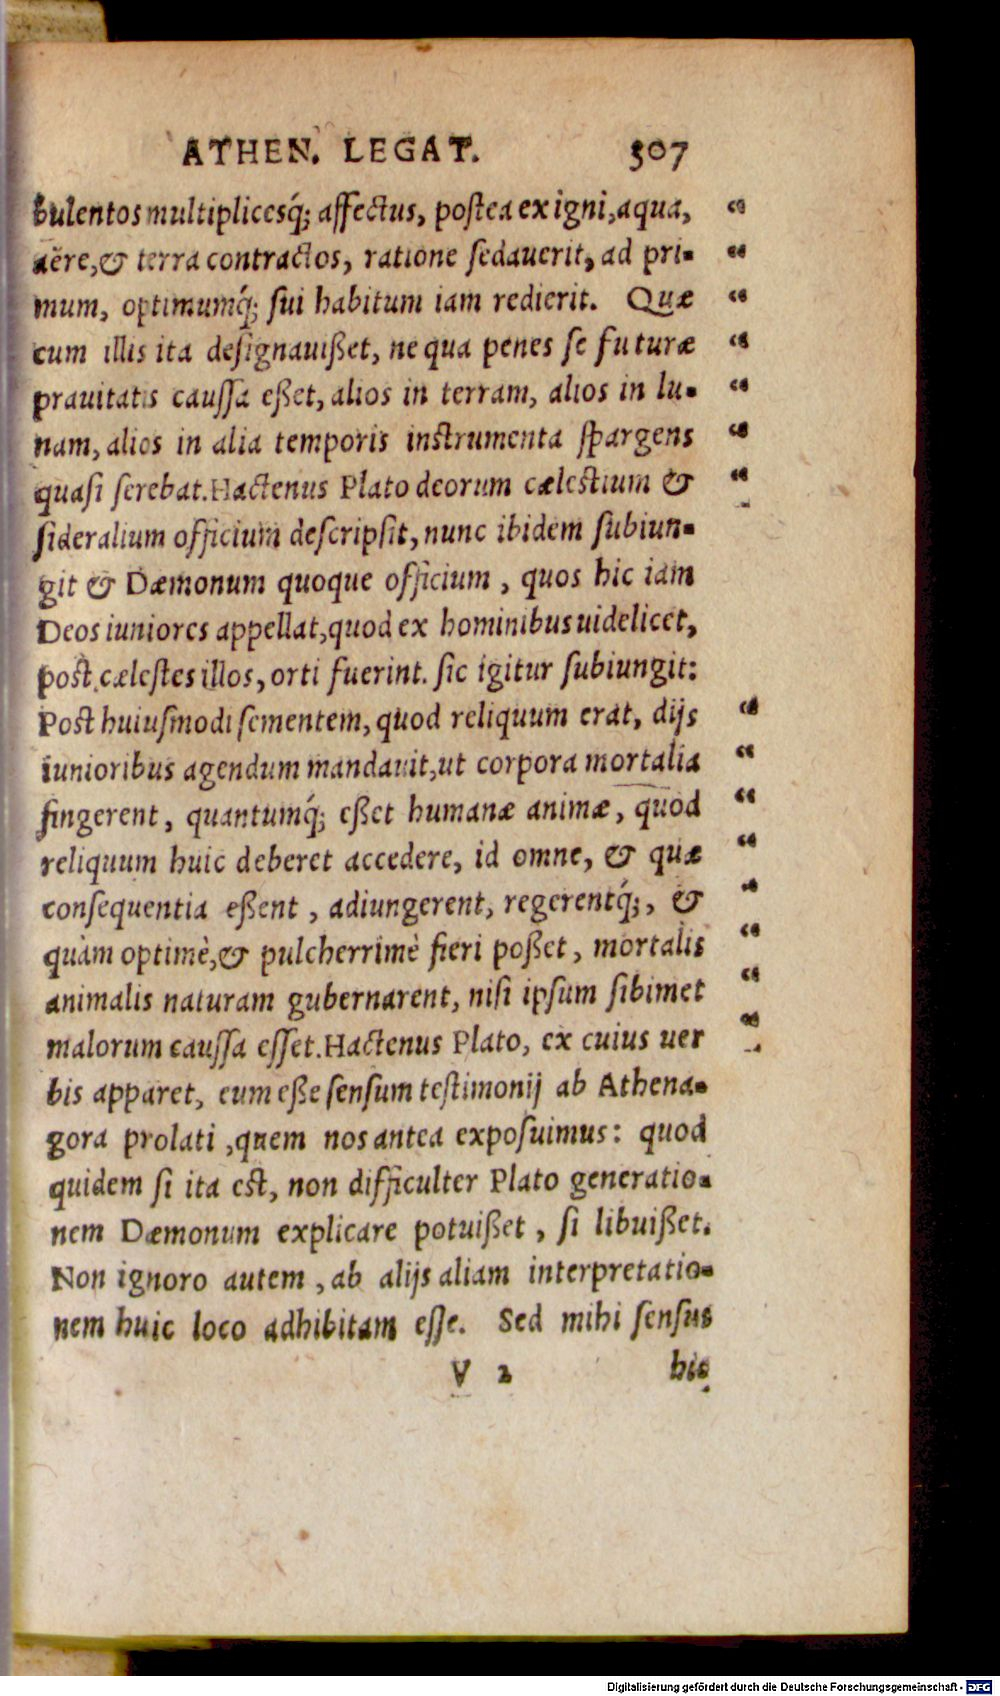 ATHEN. LEGAT. 307
bulentos multiplicesq́; affectus, postea ex igni, aqua, “
aëre, & terra contractos, ratione sedauerit, ad pri- “
mum, optimumq́; sui habitum iam redierit. Quæ “
cum illis ita designauißet, ne qua penes se futuræ “
prauitatis caussa eßet, alios in terram, alios in lu- “
nam, alios in alia temporis instrumenta spargens “
quasi serebat. Hactenus Plato deorum cælestium & “
sideralium officium descripsit, nunc ibidem subiun-
git & Dæmonum quoque officium, quos hic iam
Deos iuniores appellat, quod ex hominibus uidelicet,
post cælestes illos, orti fuerint. sic igitur subiungit:
Post huiusmodi sementem, quod reliquum erat, dijs “
iunioribus agendum mandauit, ut corpora mortalia “
fingerent, quantumq́; eßet humanæ animæ, quod “
reliquum huic deberet accedere, id omne, & quæ “
consequentia eßent, adiungerent, regerentq́;, & “
quàm optimè, & pulcherrimè fieri poßet, mortalis “
animalis naturam gubernarent, nisi ipsum sibimet “
malorum caussa esset. Hactenus Plato, ex cuius uer “
bis apparet, eum eße sensum testimonij ab Athena-
gora prolati, quem nos antea exposuimus: quod
quidem si ita est, non difficulter Plato generatio-
nem Dæmonum explicare potuißet, si libuißet.
Non ignoro autem, ab alijs aliam interpretatio-
nem huic loco adhibitam esse. Sed mihi sensus
V 2 his
Digitalisierung gefördert durch die Deutsche Forschungsgemeinschaft - DFG